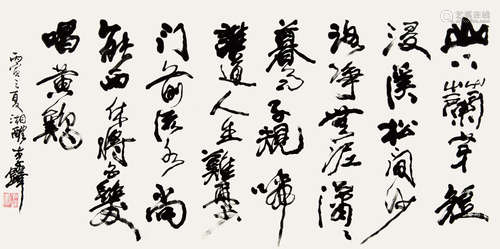 山下蘭芽短
浸溪松间沙
路净無泥瀟瀟
暮雨子規啼
誰道人生難再
门前流水尚
能西休將白髮
唱黄鷄
丙寅之夏湘醴李鐸